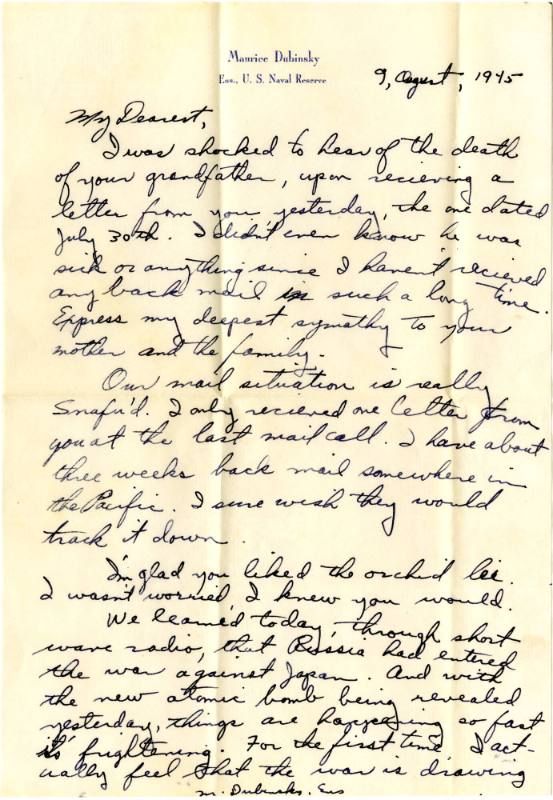 Maurice Dubinsky
Ens., U. S. Naval Reserve
9, August, 1945
My Dearest,
I was shocked to hear of the death
of your grandfather, upon recieving a
letter from you yesterday, the one dated
July 30th. I didn't even know he was
sick or anything since I haven't recieved
any back mail in such a long time.
Express my deepest symathy to your
mother and the family.
Our mail situation is really
Snafu'd. I only recieved one letter from
you at the last mail call. I have about
three weeks back mail somewhere in
the Pacific. I sure wish they would
track it down.
I'm glad you liked the orchid lei.
I wasn't worried, I knew you would.
We learned today, through short
wave radio, that Russia had entered
the war against Japan. And with
the new atomic bomb being revealed
yesterday, things are happening so fast
it's frightening. For the first time I act-
ually feel that the war is drawing
M. Dubinsky. Ens